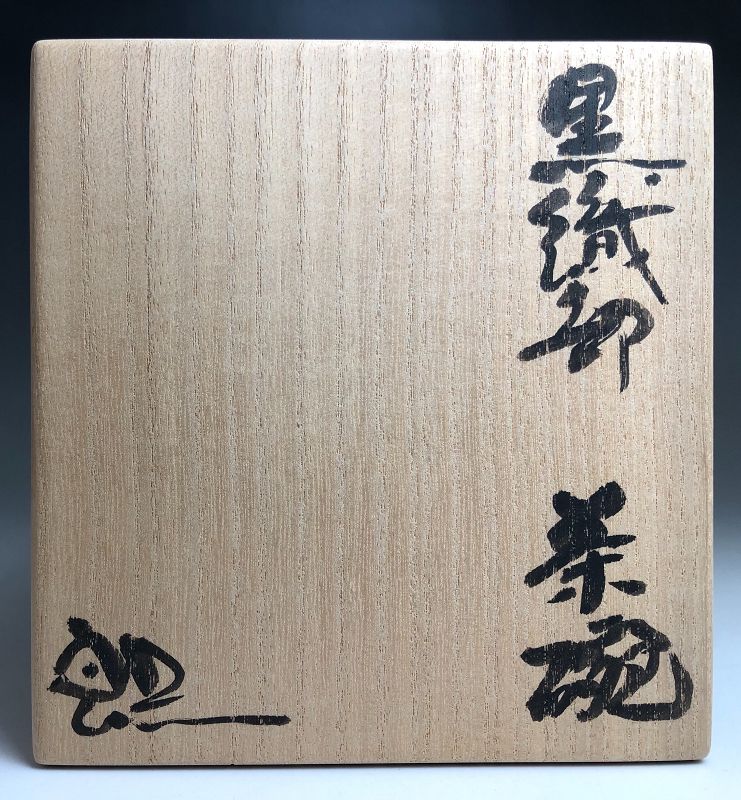 黒織部 茶碗